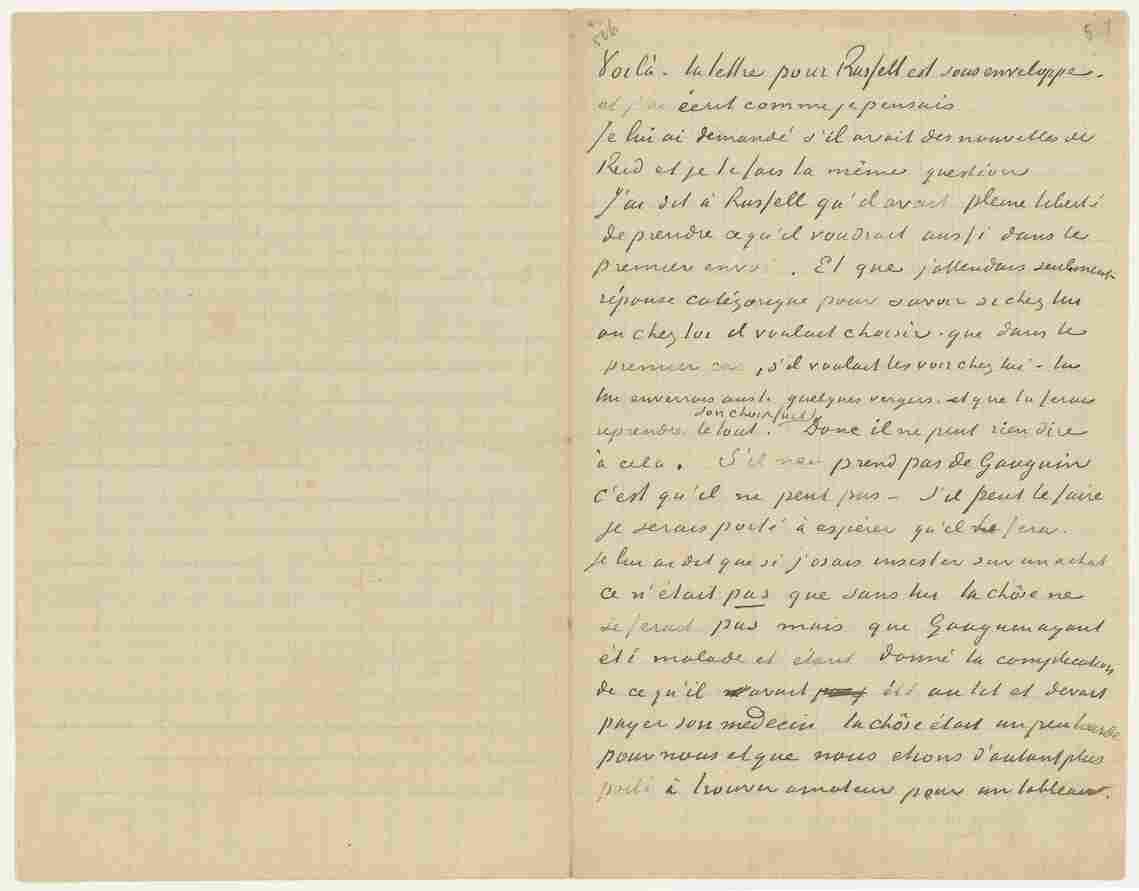 506
57
Voilà – la lettre pour Russell est sous enveloppe.
et j'ai écrit comme je pensais
Je lui ai demandé s'il avait des nouvelles de
Reid et je te fais la même question
J'ai dit à Russell qu'il avait pleine liberté
de prendre ce qu'il voudrait aussi dans le
premier envoi. Et que j'attendais seulement
réponse catégorique pour savoir si chez lui
ou chez toi il voulait choisir. que dans le
premier cas, s'il voulait les voir chez lui – tu
lui enverrais aussi quelques vergers. et que tu ferais
son choix fait
reprendre le tout. Donc il ne peut rien dire
à cela. S'il n'en prend pas de Gauguin
c'est qu'il ne peut pas – S'il peut le faire
je serais porté à espérer qu'il le fera.
je lui ai dit que si j'osais insister sur un achat
ce n'était pas que sans lui la chôse ne
se ferait pas mais que Gauguin ayant
été malade et étant donné la complication
de ce qu'il avait été au lit et devait
payer son medecin la chôse était un peu lourde
pour nous et que nous etions d'autant plus
porté à trouver amateur pour un tableau.